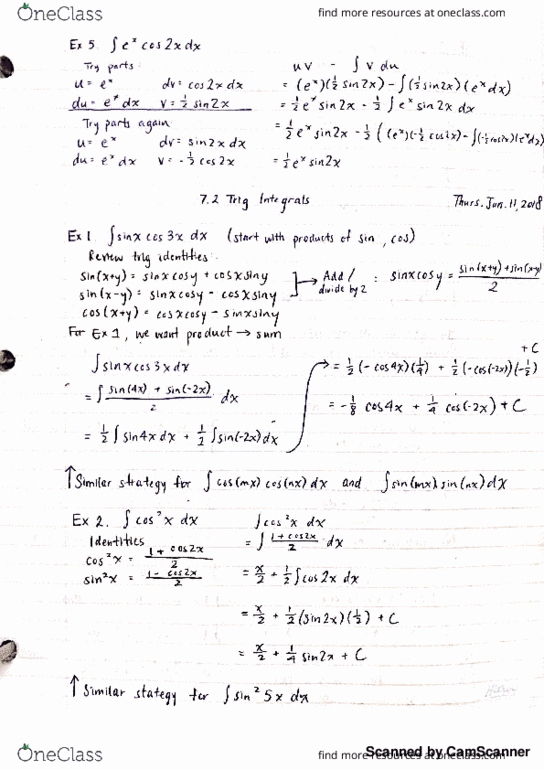 OneClass find more resources at oneclass.com
Ex 5. ∫e^x cos2x dx
Try parts: uv - ∫v du
u = e^x dv = cos2x dx = (e^x)(½ sin2x) - ∫(½ sin2x)(e^x dx)
du = e^x dx v = ½ sin2x = ½ e^x sin2x - ½ ∫e^x sin2x dx
Try parts again: = ½ e^x sin2x - ½ ((e^x)(-½ cos2x) - ∫(-½ cos2x)(e^x dx)
u = e^x dv = sin2x dx
du = e^x dx v = -½ cos2x = ½ e^x sin2x
7.2 Trig Integrals Thurs. Jan. 11, 2018
Ex 1. ∫sinx cos3x dx (start with products of sin, cos)
Review trig identities:
sin(x+y) = sinx cosy + cosx siny
sin(x-y) = sinx cosy - cosx siny
cos(x+y) = cosx cosy - sinx siny
Add / divide by 2 : sinx cosy = (sin(x+y) + sin(x-y))/2
For Ex 1, we want product → sum
∫sinx cos3x dx
= ∫ (sin(4x) + sin(-2x))/2 dx
= ½ ∫sin4x dx + ½ ∫sin(-2x) dx
= ½ (-cos4x)(¼) + ½ (-cos(-2x))(-½) + C
= -⅛ cos4x + ¼ cos(-2x) + C
↑ Similar strategy for ∫cos(mx) cos(nx) dx and ∫sin(mx) sin(nx) dx
Ex 2. ∫cos²x dx
Identities
cos²x = (1 + cos2x)/2
sin²x = (1 - cos2x)/2
∫cos²x dx
= ∫ (1 + cos2x)/2 dx
= x/2 + ½ ∫cos2x dx
= x/2 + ½ (sin2x)(½) + C
= x/2 + ¼ sin2x + C
↑ Similar stategy for ∫sin² 5x dx
OneClass find more resources at oneclass.com
Scanned by CamScanner